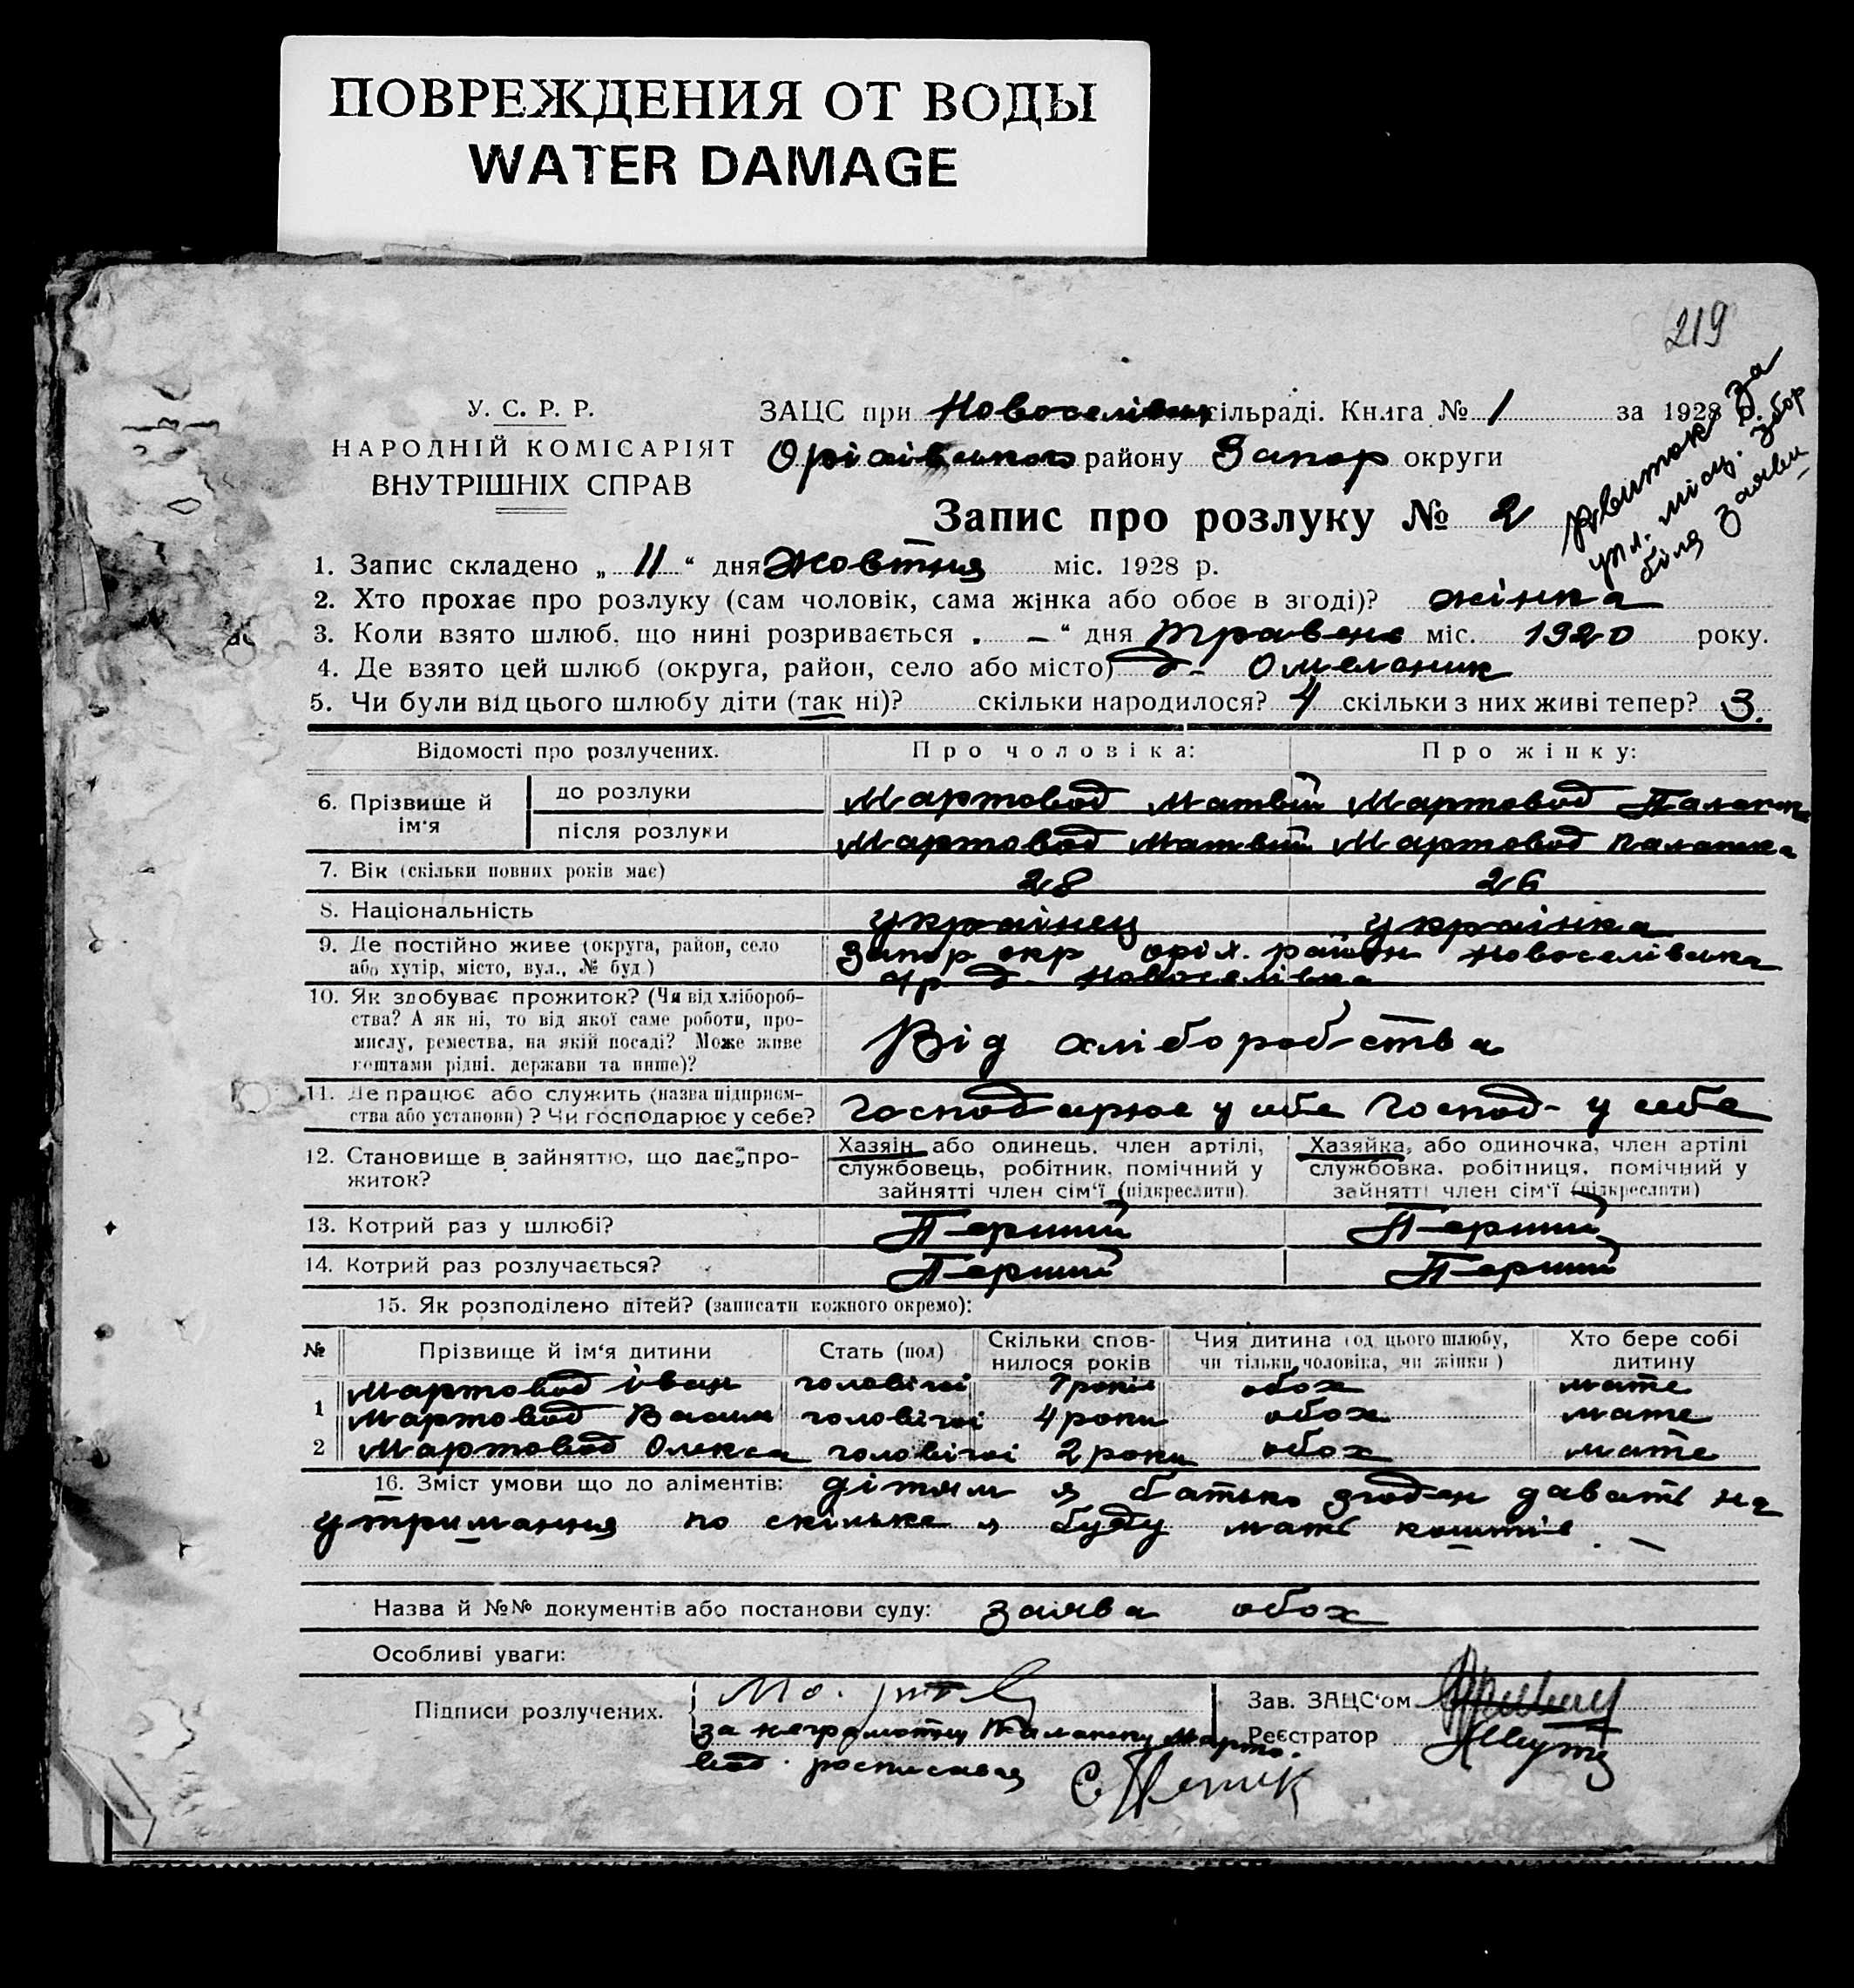 ПОВРЕЖДЕНИЯ ОТ ВОДЫ
WATER DAMAGE
219
У. С. Р. Р.
НАРОДНІЙ КОМІСАРІЯТ
ВНУТРІШНІХ СПРАВ
ЗАЦС при Новоселівськ сільраді. Книга № 1 за 1928 р.
Оріхівського району Запор округи
Запис про розлуку № 2
Квиток за
упл. місц. збор
біля заяви
1. Запис складено „ 11 “ дня Жовтня міс. 1928 р.
2. Хто прохає про розлуку (сам чоловік, сама жінка або обоє в згоді)? жінка
3. Коли взято шлюб, що нині розривається „ – “ дня травене міс. 1920 року.
4. Де взято цей шлюб (округа, район, село або місто) Омельник
5. Чи були від цього шлюбу діти (так ні)? скільки народилося? 4 скільки з них живі тепер? 3.
Відомості про розлучених. Про чоловіка: Про жінку:
6. Прізвище й ім‘я
до розлуки Мартовод Матвій Мартовод
після розлуки Мартовод Матвій Мартовод
7. Вік (скільки повних років має) 28 26
8. Національність українец українка
9. Де постійно живе (округа, район, село Запор окр оріх. район Новоселівська
або хутір, місто, вул., № буд.) Новоселівка
10. Як здобуває прожиток? (Чи від хлібороб-
ства? А як ні, то від якої саме роботи, про-
мислу, ремества, на якій посаді? Може живе
коштами рідні, держави та инше)? Від хліборобства
11. Де працює або служить (назва підприєм-
ства або установи)? Чи господарює у себе? господарює у себе Господ- у себе
12. Становище в зайняттю, що дає про-
житок?
Хазяїн або одинець, член артілі,
службовець, робітник, помічний у
зайнятті член сім‘ї (підкреслити)
Хазяйка, або одиночка, член артілі
службовка, робітниця, помічний у
зайнятті член сім‘ї (підкреслити)
13. Котрий раз у шлюбі? Перший Перший
14. Котрий раз розлучається? Перший Перший
15. Як розподілено дітей? (записати кожного окремо):
№ Прізвище й ім‘я дитини Стать (пол) Скільки спов-
нилося років Чия дитина (од цього шлюбу,
чи тільки чоловіка, чи жінки) Хто бере собі
дитину
Мартовод Іван чоловічої 7 років обох мате
1 Мартовод Васил чоловічої 4 роки обох мате
2 Мартовод Олекса чоловічої 2 роки обох мате
16. Зміст умови що до аліментів: дітям я батько згоден давать на
утримання по скільке я буду мать коштів. –
Назва й №№ документів або постанови суду: заява обох
Особливі уваги:
Підписи розлучених.
за неграмотну Марто-
вод росписався
Зав. ЗАЦС‘ом
Реєстратор